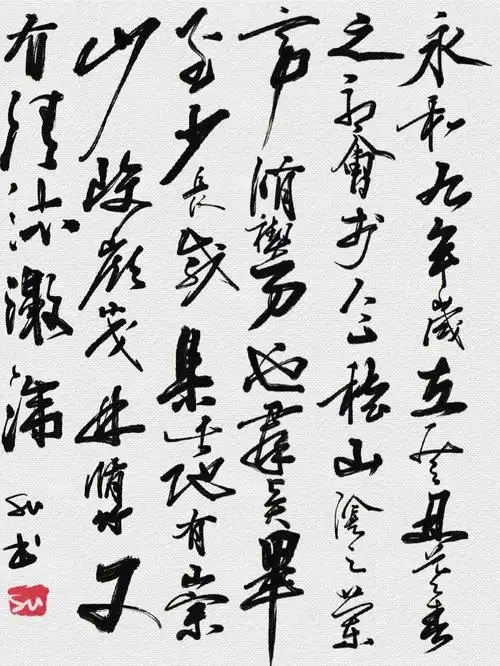 永和九年歲在癸丑暮春
之初會於会稽山陰之蘭
亭脩禊事也群賢畢
至少長咸集此地有崇
山峻嶺茂林脩竹又
有清流激湍
su书
su